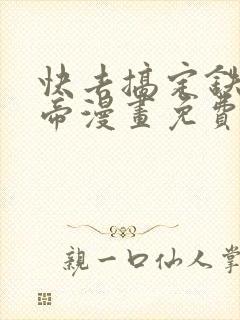 快去搞定鉄
帝漫畫免費
親一口仙人掌